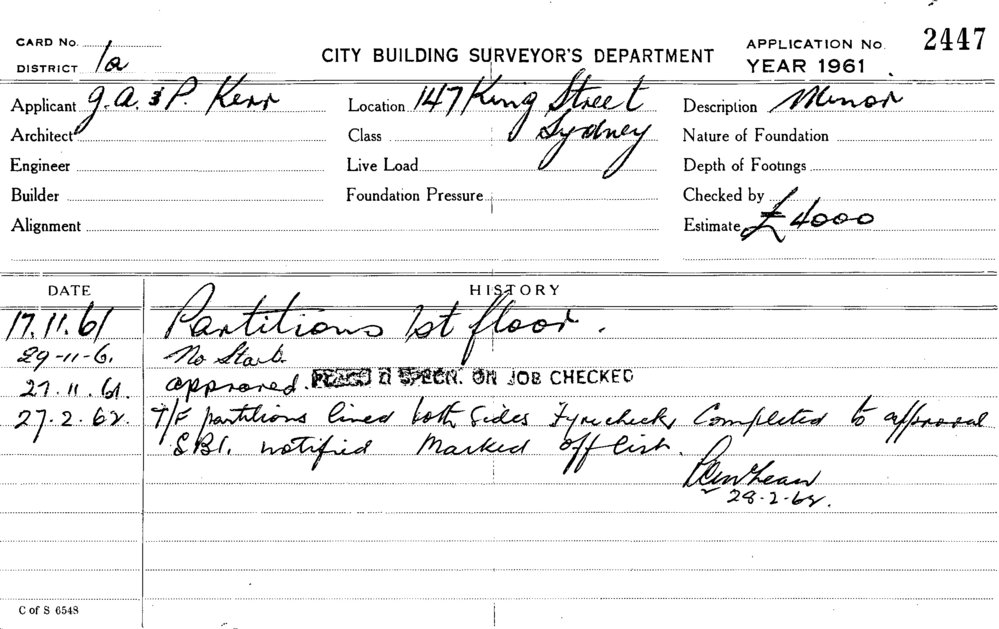 CARD No.
DISTRICT 1a
CITY BUILDING SURVEYOR'S DEPARTMENT
APPLICATION No. 2447
YEAR 1961
Applicant G.A. & P. Kerr
Location 147 King Street
Sydney
Description Minor
Architect
Class
Nature of Foundation
Engineer
Live Load
Depth of Footings
Builder
Foundation Pressure
Checked by
Alignment
Estimate £4000
DATE HISTORY
17.11.61 Partitions 1st floor.
29-11-61. No Start.
27.11.61. approved. PLANS & SPECN. ON JOB CHECKED
27.2.62. T/F partitions lined both sides Fyrecheck, Completed to approval
S.B.I. notified Marked off list.
28-2-62.
C of S 6548